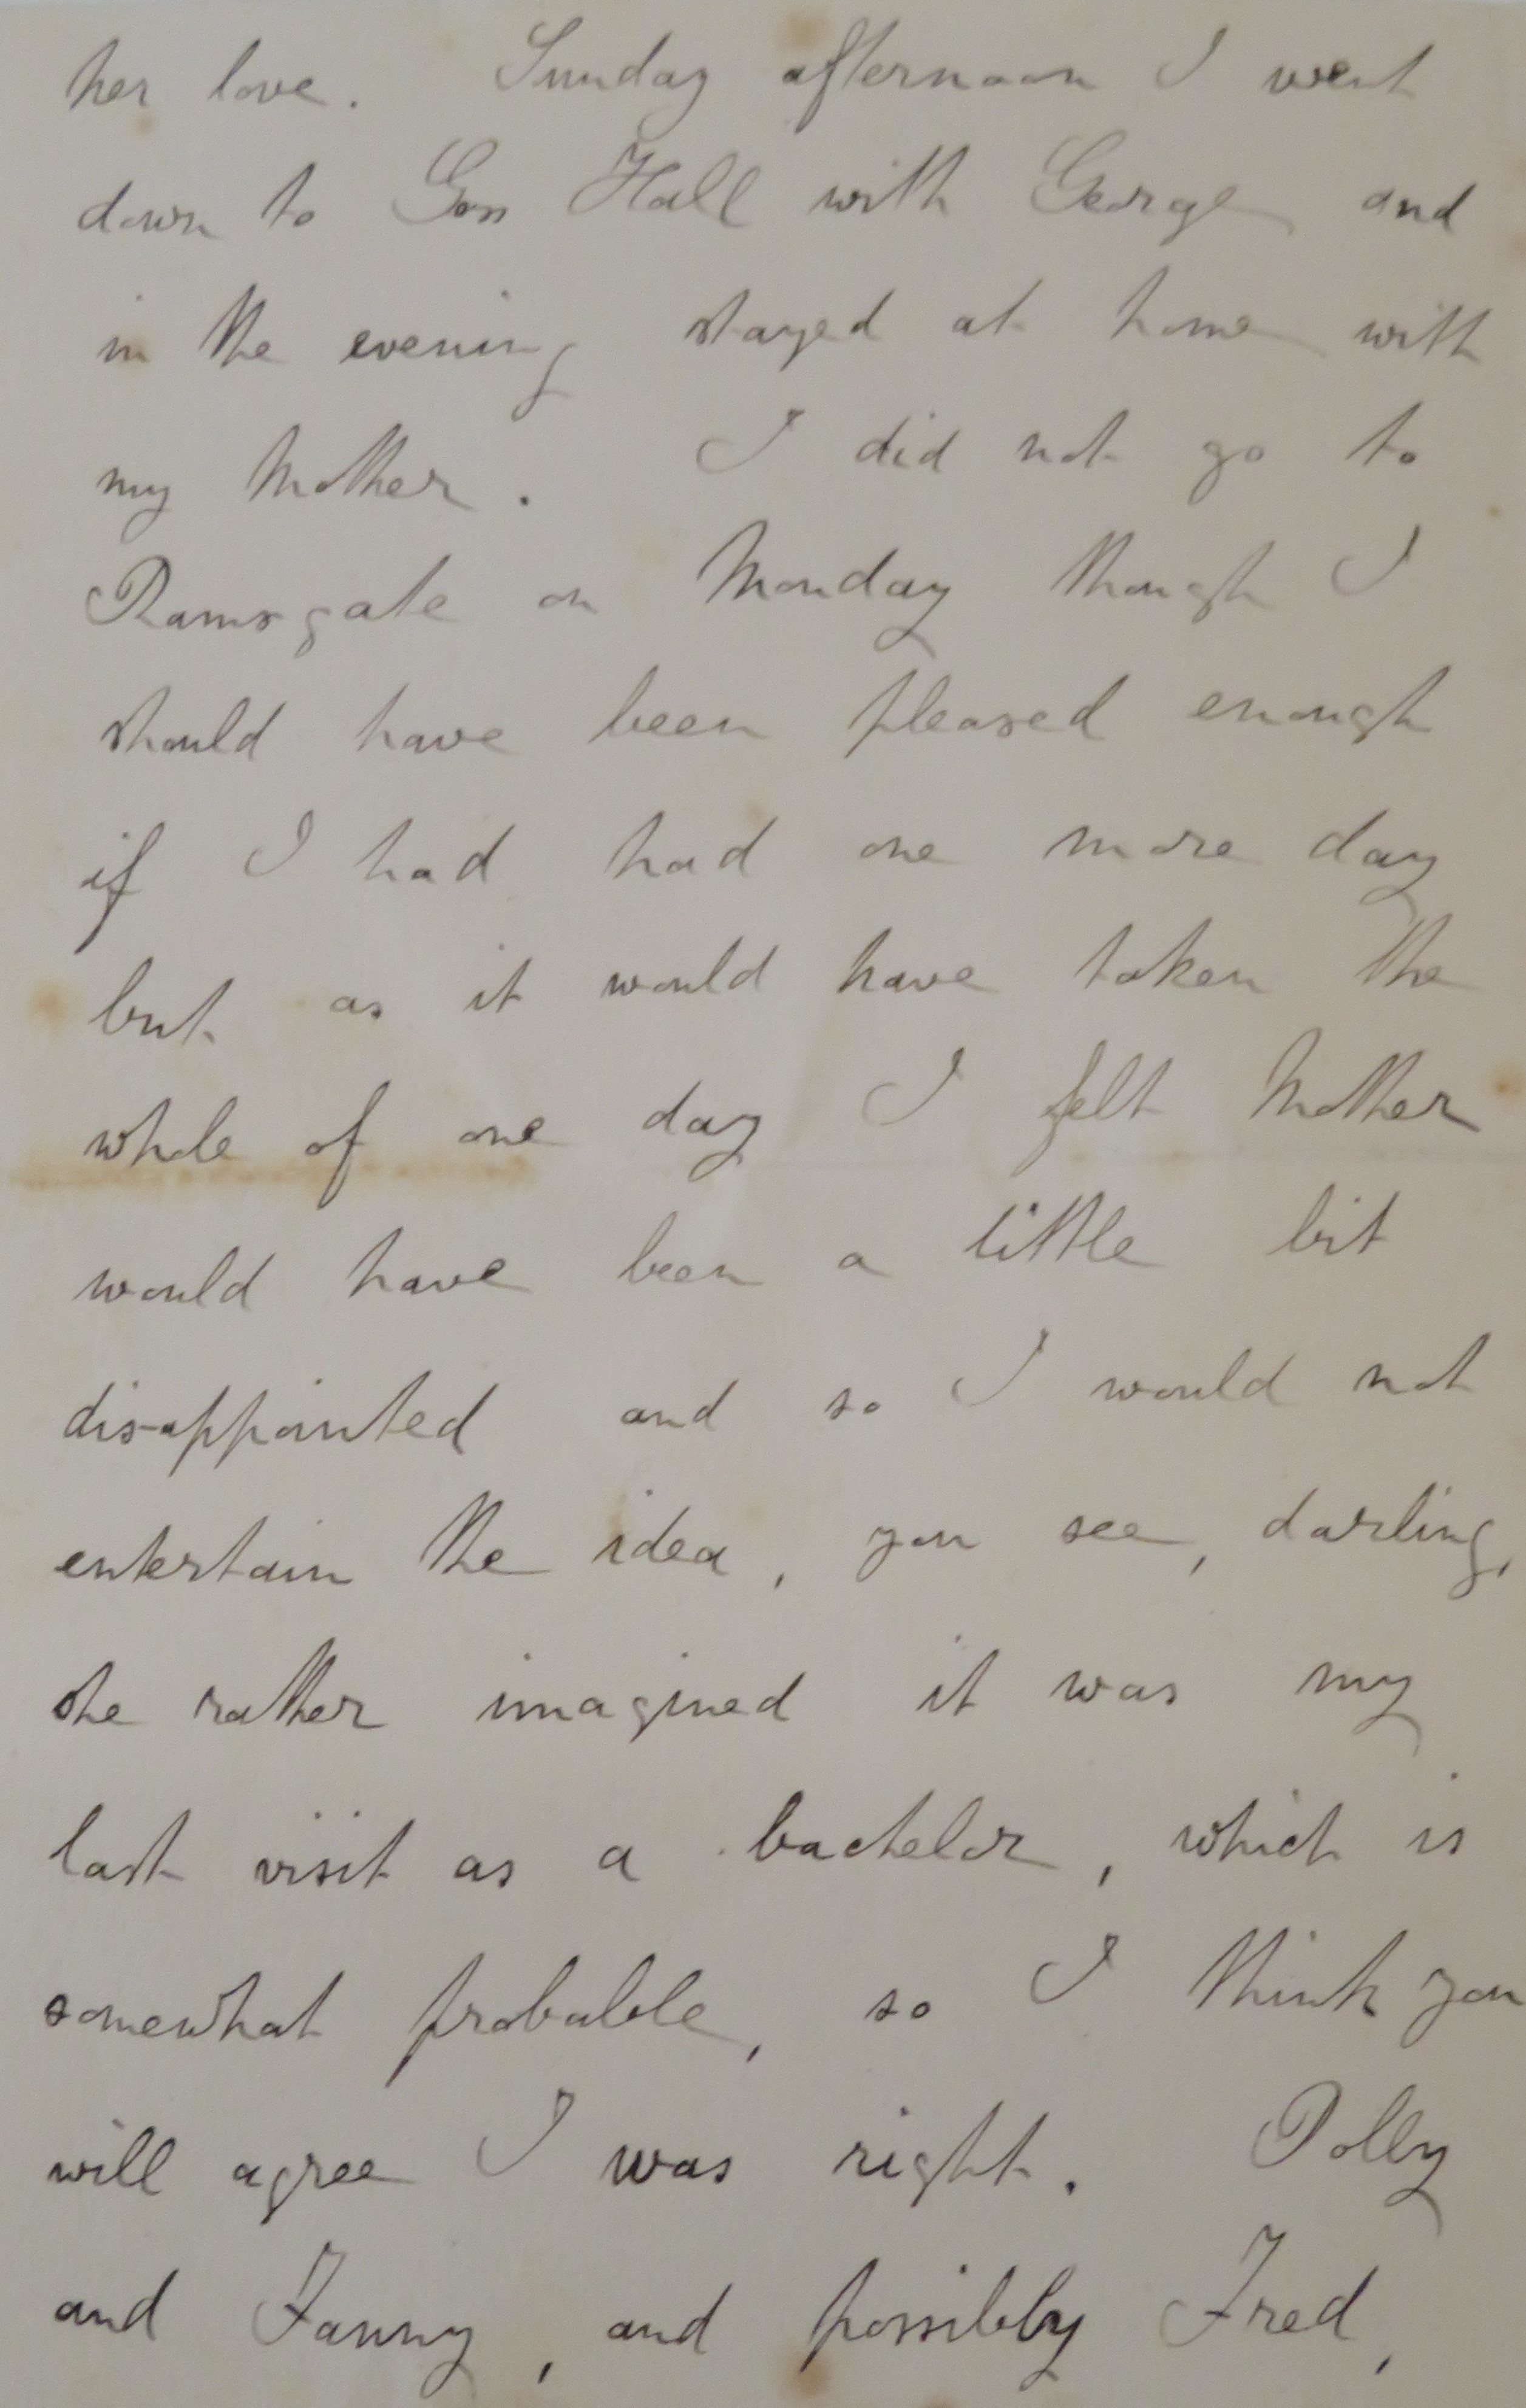 her love. Sunday afternoon I went
down to Goss Hall with George and
in the evening stayed at home with
my Mother. I did not go to
Ramsgate on Monday though I
should have been pleased enough
if I had had one more day
but as it would have taken the
whole of one day I felt Mother
would have been a little bit
disappointed and so I would not
entertain the idea, you see, darling,
she rather imagined it was my
last visit as a bachelor, which is
somewhat probable, so I think you
will agree I was right. Polly
and Fanny, and possibly Fred,